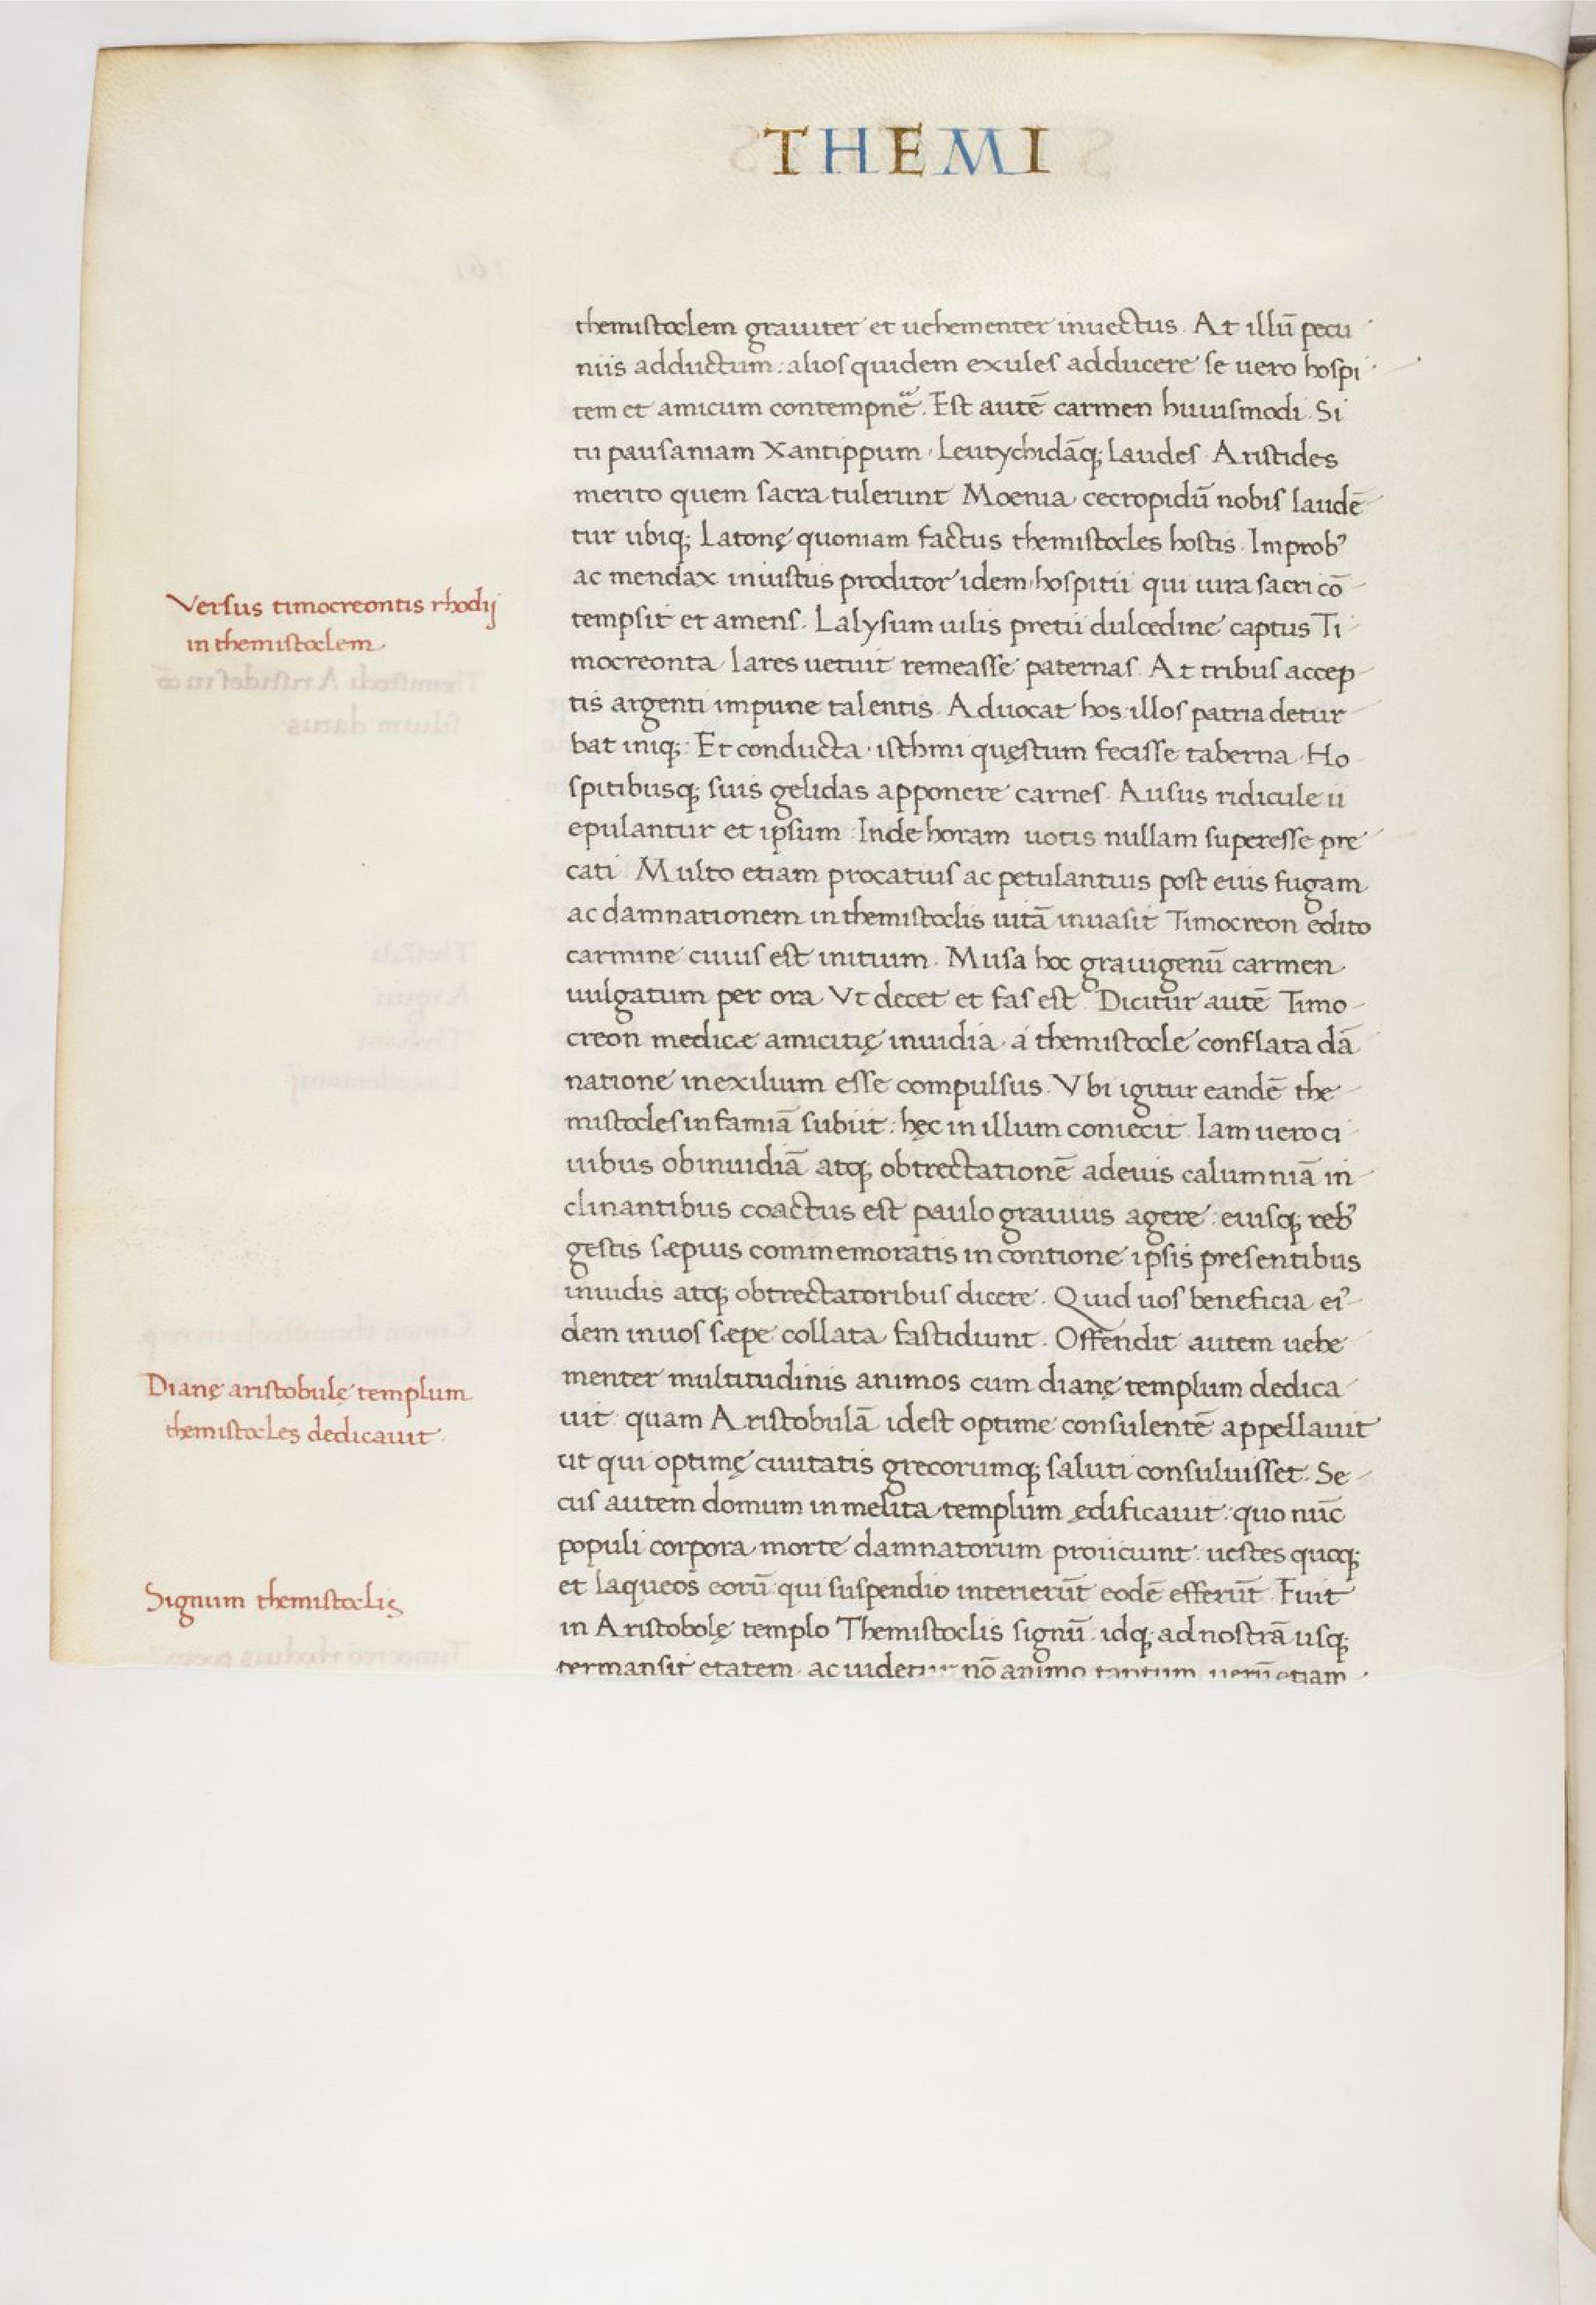 THEMI
themistoclem grauiter et uehementer inuectus. At illū pecu
niis adductum: alios quidem exules adducere se uero hospi
tem et amicum contempnē. Est autē carmen huiusmodi. Si
tu pausaniam Xantippum. Leutychidāq; laudes. Aristides
merito quem sacra tulerunt Moenia cecropidū nobis laudē
tur ubiq; Latonę quoniam factus themistocles hostis. Improb'
ac mendax iniustus proditor idem hospitii qui iura sacri cō
Versus timocreontis rhodij
in themistoclem
tempsit et amens. Lalysum uilis pretii dulcedine captus Ti
mocreonta lares uetuit remeasse paternas. At tribus accep
tis argenti impune talentis. Aduocat hos illos patria detur
bat iniq;: Et conducta isthmi quęstum fecisse taberna. Ho
spitibusq; suis gelidas apponere carnes. Ausus ridicule ii
epulantur et ipsum: Inde horam uotis nullam superesse pre
cati. Multo etiam procatius ac petulantius post eius fugam
ac damnationem in themistoclis uitā inuasit Timocreon edito
carmine cuius est initium. Musa hoc grauigenū carmen
uulgatum per ora Vt decet et fas est. Dicitur autē Timo
creon medicæ amicitię inuidia á themistocle conflata dā
natione in exilium esse compulsus. Vbi igitur eandē the
mistocles infamiā subiit: hęc in illum coniecit. Iam uero ci
uibus ob inuidiā atq; obtrectationē ad eius calumniā in
clinantibus coactus est paulo grauius agere: eiusq; reb'
gestis sæpius commemoratis in contione ipsis presentibus
inuidis atq; obtrectatoribus dicere. Quid uos beneficia ei'
dem in uos sæpe collata fastidiunt. Offendit autem uehe
menter multitudinis animos cum dianę templum dedica
Dianę aristobulę templum
themistocles dedicauit.
uit: quam Aristobulā idest optime consulentē appellauit
ut qui optimę ciuitatis grecorumq; saluti consuluisset. Se
cus autem domum in melita templum ędificauit: quo nūc
populi corpora morte damnatorum proiiciunt: uestes quoq;
et laqueos eorū qui suspendio interierūt eodē efferūt. Fuit
Signum themistoclis
in Aristobolę templo Themistoclis signū: idq; ad nostrā usq;
etatem ac uidetur nō animo tantum uerū etiam